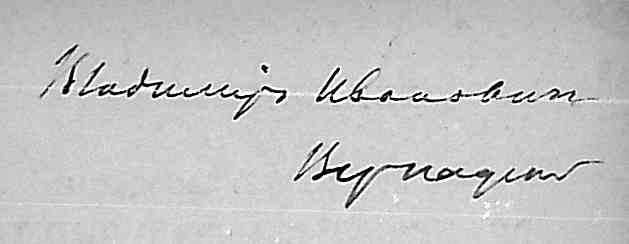 Владиміръ Ивановичъ
Вернадскій